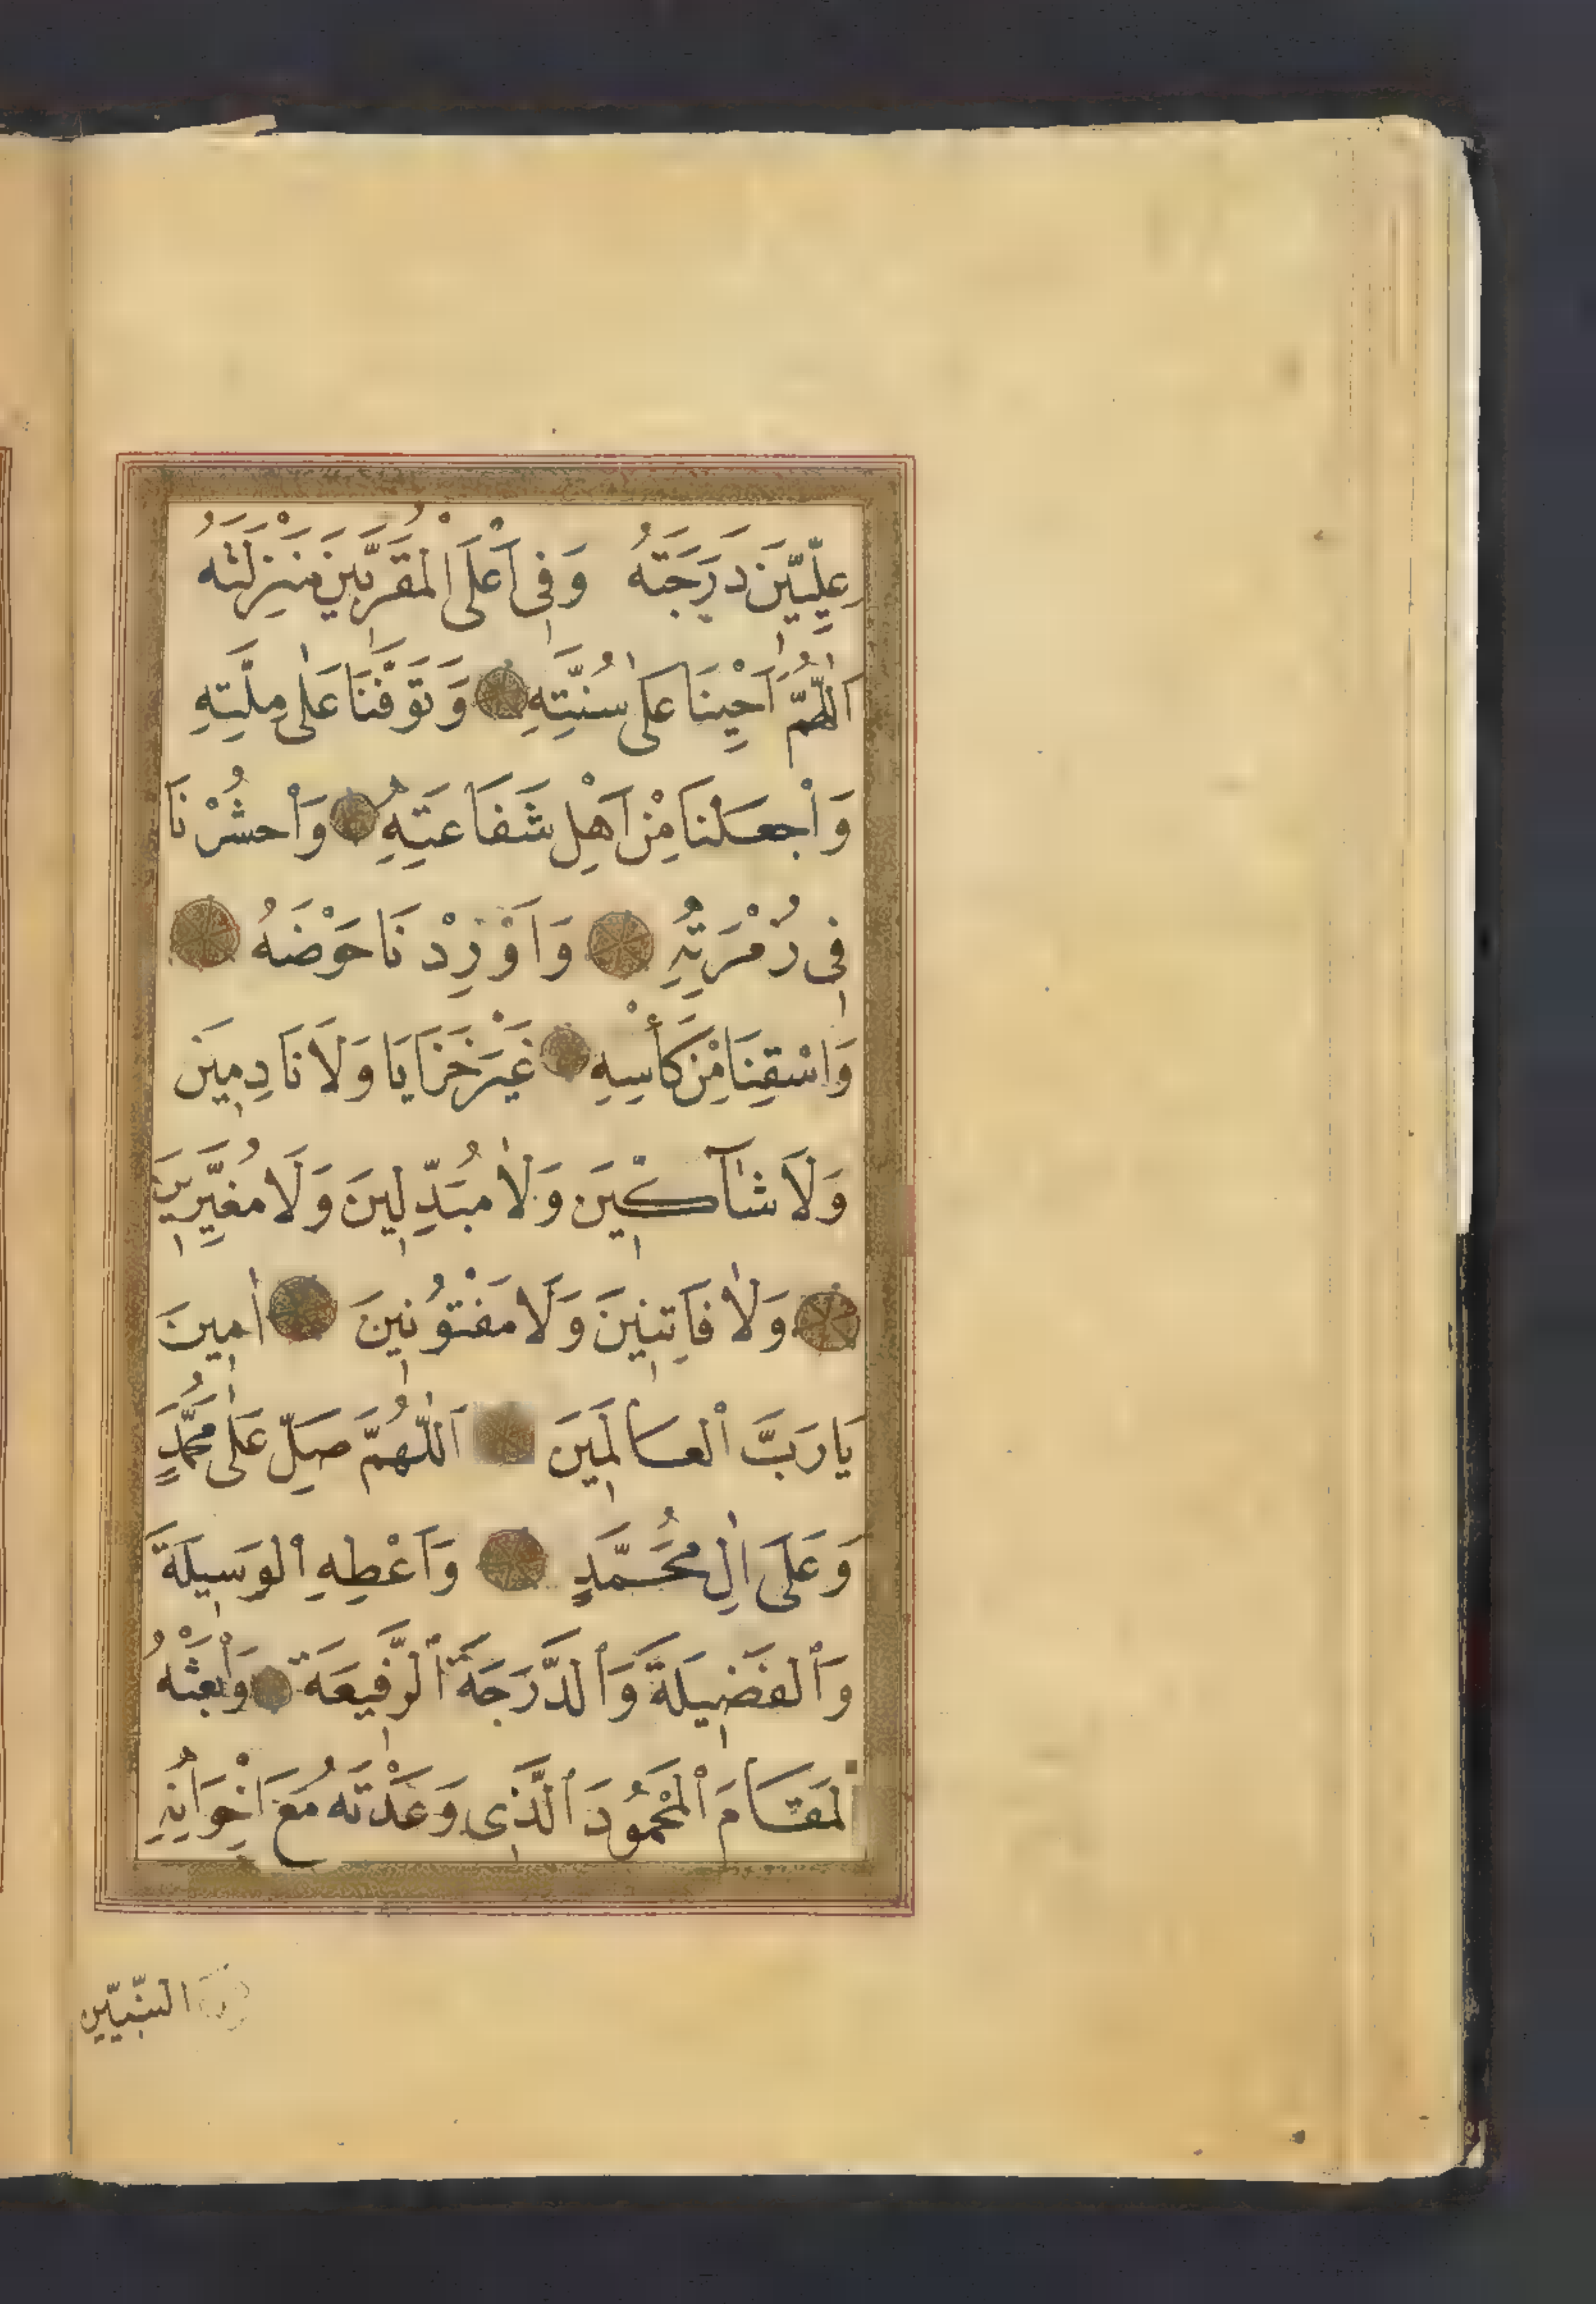 عِلِّيِّينَ دَرَجَتَهُ وَفِي أَعْلَى الْمُقَرَّبِينَ مَنْزِلَتَهُ
اَللّٰهُمَّ اَحْيِنَا عَلٰى سُنَّتِهِ وَتَوَفَّنَا عَلٰى مِلَّتِهِ
وَاجْعَلْنَا مِنْ اَهْلِ شَفَاعَتِهِ وَاحْشُرْنَا
فِي زُمْرَتِهِ وَاَوْرِدْنَا حَوْضَهُ
وَاسْقِنَا مِنْ كَأْسِهِ غَيْرَ خَزَايَا وَلَا نَادِمِينَ
وَلَا شَآكِّينَ وَلَا مُبَدِّلِينَ وَلَا مُغَيِّرِينَ
وَلَا فَاتِنِينَ وَلَا مَفْتُونِينَ اٰمِينَ
يَا رَبَّ الْعَالَمِينَ اَللّٰهُمَّ صَلِّ عَلٰى مُحَمَّدٍ
وَعَلَى اٰلِ مُحَمَّدٍ وَاَعْطِهِ الْوَسِيلَةَ
وَالْفَضِيلَةَ وَالدَّرَجَةَ الرَّفِيعَةَ وَابْعَثْهُ
الْمَقَامَ الْمَحْمُودَ الَّذِي وَعَدْتَهُ مَعَ اِخْوَانِهِ
النَّبِيِّينَ